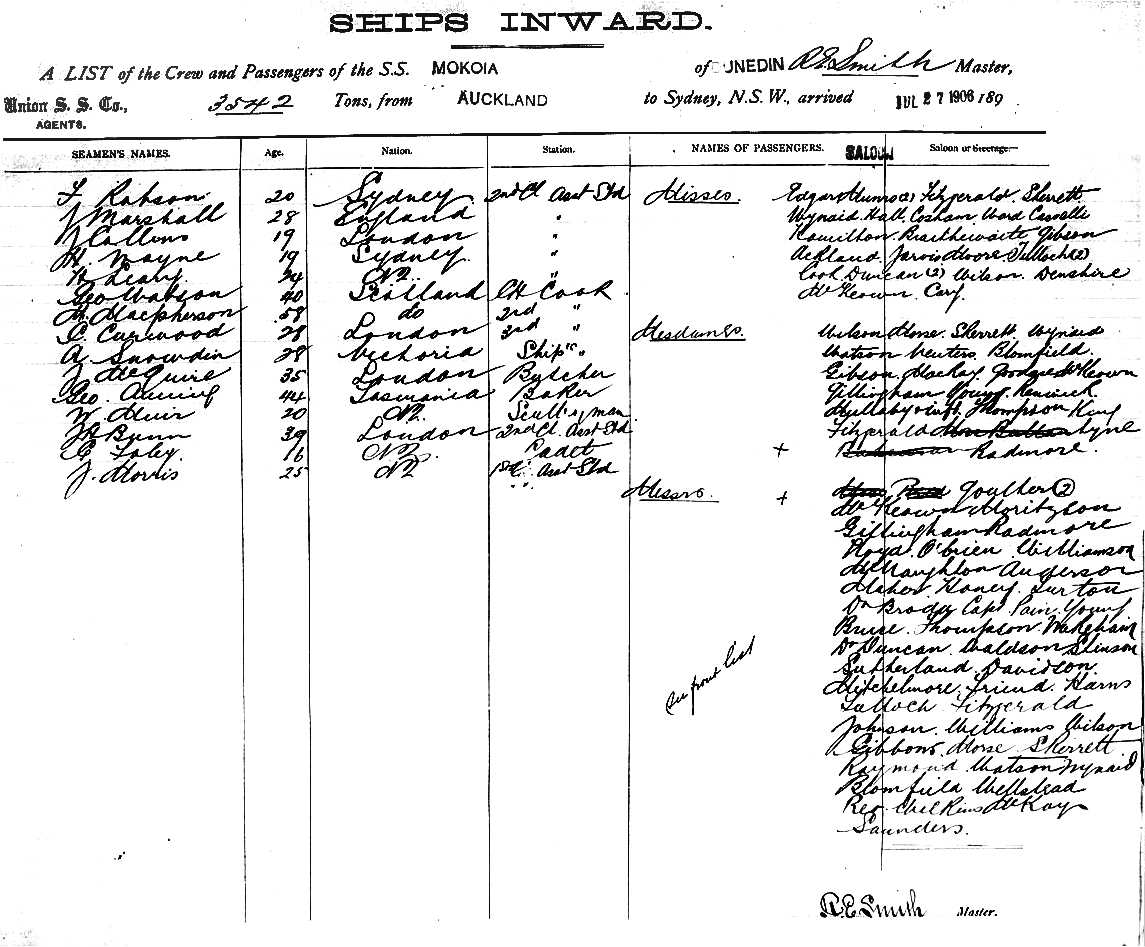 SHIPS INWARD.
A LIST of the Crew and Passengers of the S.S. MOKOIA of DUNEDIN R E Smith Master,
Union S. S. Co., 3542 Tons, from AUCKLAND to Sydney, N.S.W., arrived JUL 27 1906 189
AGENTS.
SEAMEN'S NAMES. Age. Nation. Station. NAMES OF PASSENGERS. SALOON Saloon or Steerage.
F Robson 20 Sydney 2nd Cl Asst Std Misses. Edgar Munro (2) Fitzgerald. Sherrett
J Marshall 28 England " Wynaid Hall. Cosham Ward
J Collins 19 London " Hamilton. Braithewaite Gibson
H. Wayne 19 Sydney " Acland Jarvis Moore Tulloch (2)
H Leary 24 NZ. " Cook Duncan (2) Wilson. Denshire
Geo Watson 40 Scotland Ch Cook McKeown. Cary.
H. Macpherson 58 do 2nd "
C. Curwood 28 London 3rd " Mesdames. Wilson Morse. Sherrett Wynaid
A Snowdin 28 Victoria Ship's " Watson Venters. Blomfield.
J McGuire 35 London Butcher Gibson Mackay McKeown
Geo. 44 Tasmania Baker Gillingham Young Renwick
W. Muir 20 NZ. Scull'yman Thompson King
Bunn 39 London 2nd Cl. Asst Std Fitzgerald
Foley 16 NZ. Cadet + Radmore.
J. Morris 25 NZ 1st Cl. Asst Std
Messrs. + Goulter (2)
McKeown Moritzson
Gillingham Radmore
Lloyd. O'brien Williamson
McNaughton Anderson
Maher. Honey. Surton
Dr Brody Capt. Pain. Young
Bruce. Thompson Wakeham
Dr Duncan. Waldson Stinson
Sutherland. Davidson.
Mitchelmore. Friend. Harris
Tulloch Fitzgerald
Johnson. Williams Wilson
Gibbons. Morse Sherrett
Raymond Watson Wynaid
Blomfield Wellstead
Rev. McKay
Saunders.
see front list
R.E. Smith Master.